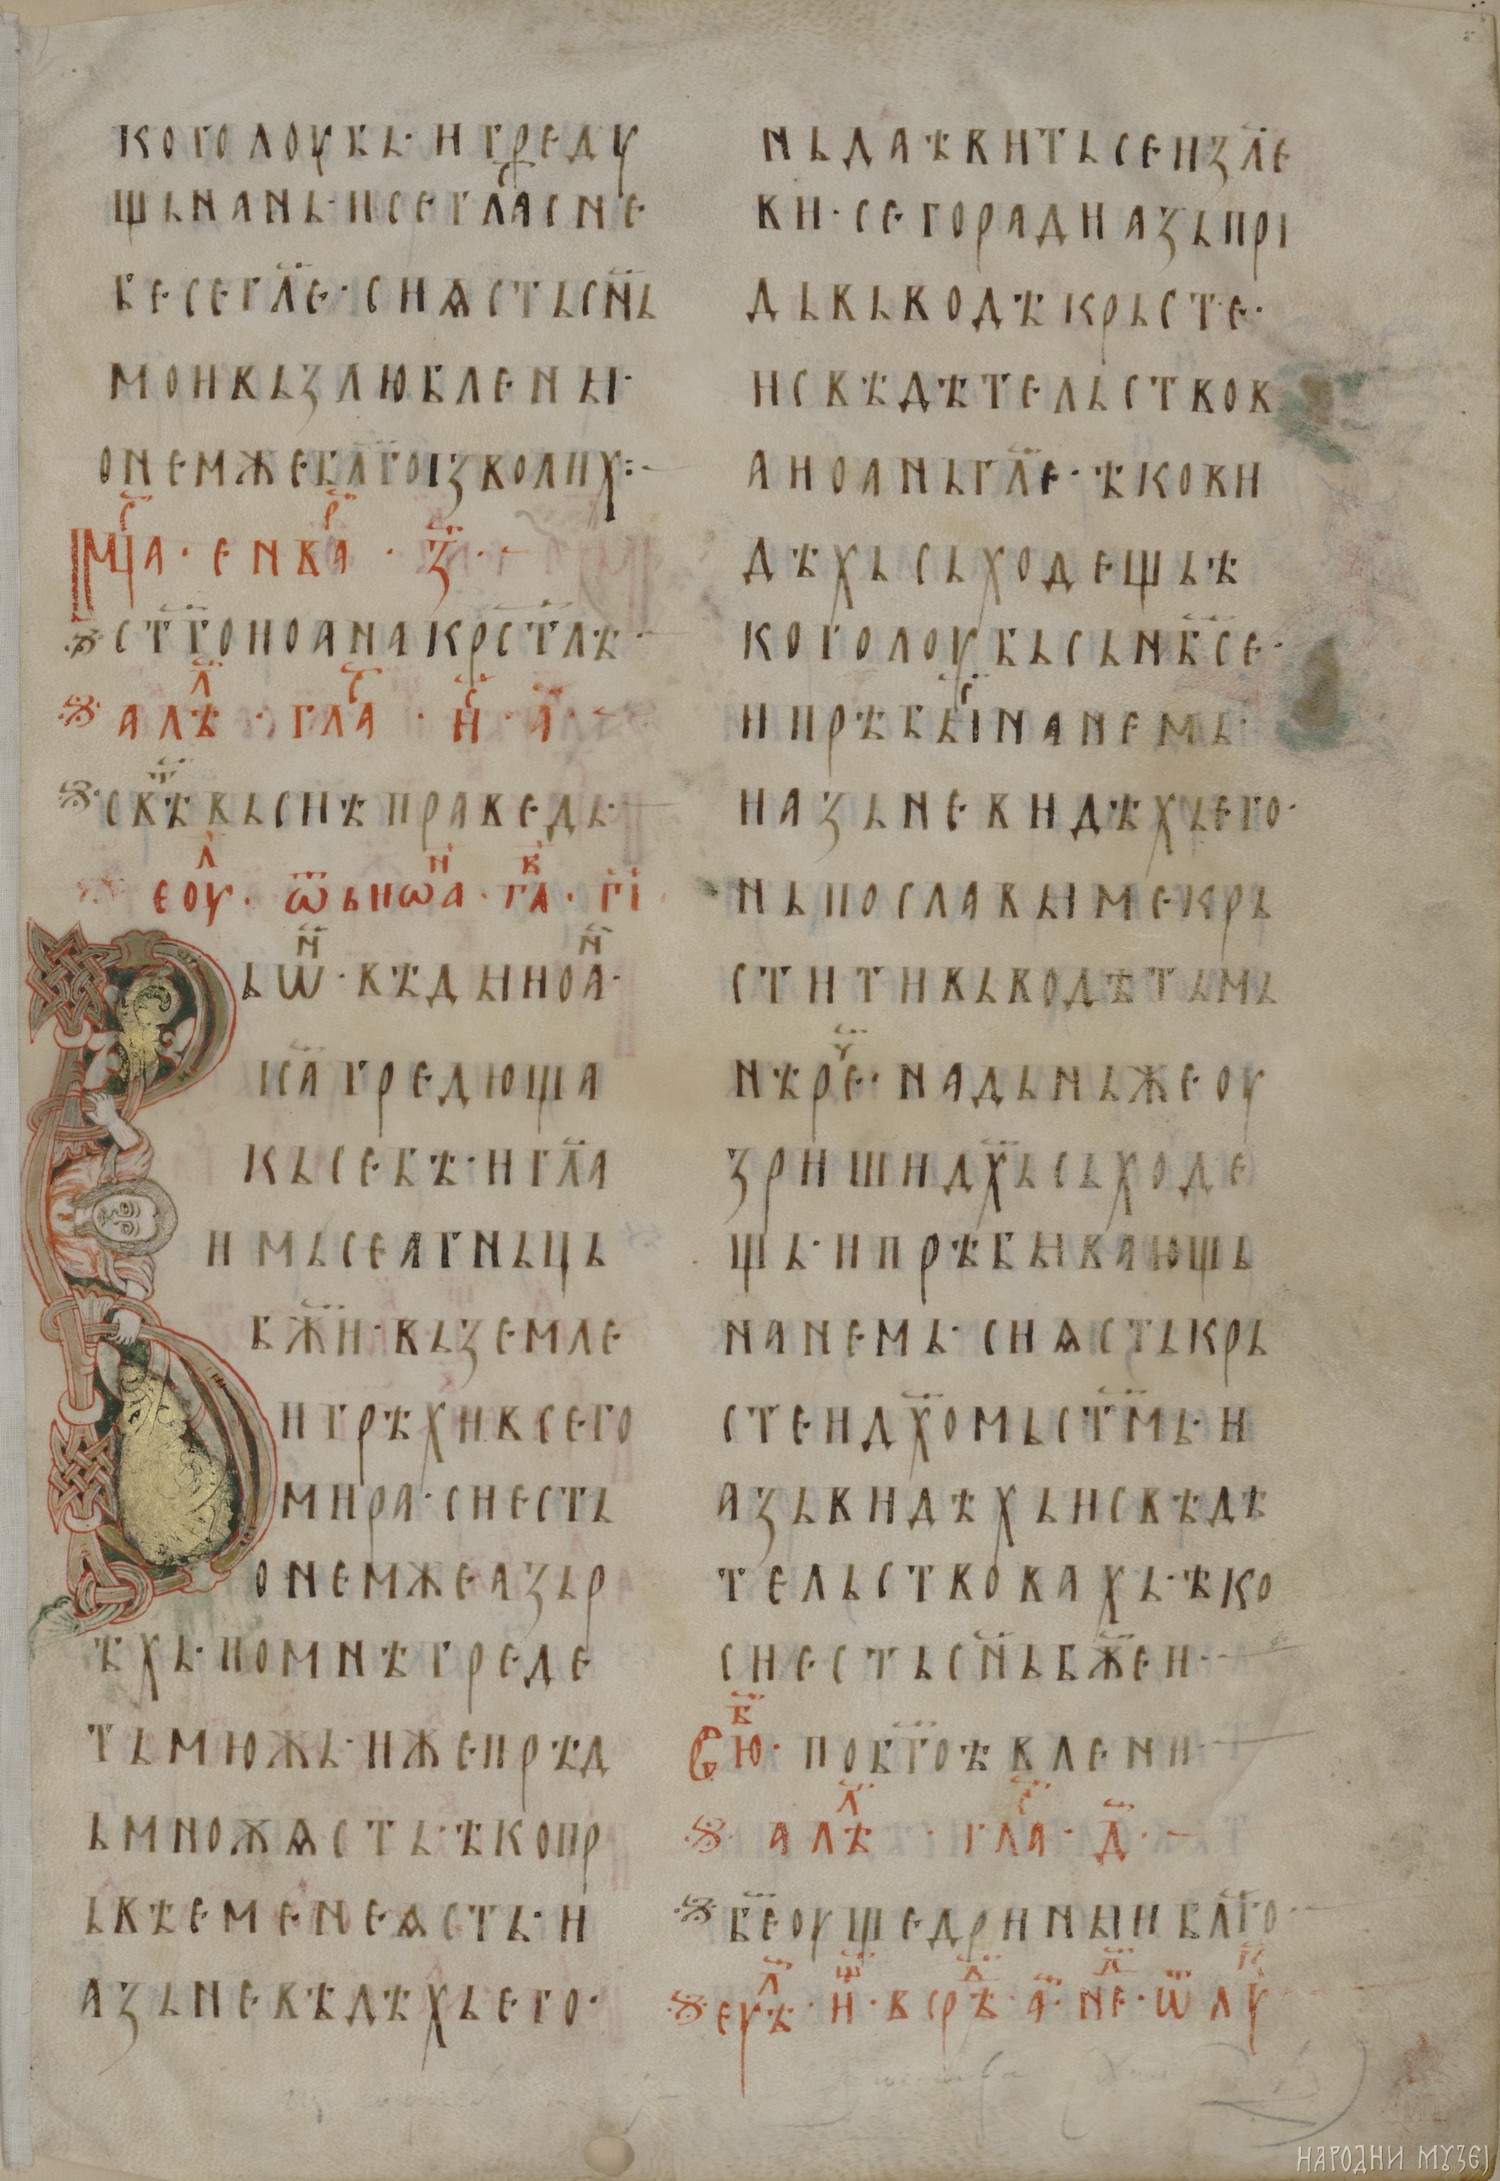 коголоубь· и греду
щь на нь· и се гласъ не
бесе гл҃е· си ѩсть сн҃ь
мои вьзлюблены·
о немже бл҃гоізволих:-
мц҃а · енва · з҃ ·
ст҃го иоана крстлѣ·
алѣ · гла · и҃ · а҃ ·
свѣ вьсиѣ праведь·
еоу · ѿ ьиѡа · гл҃а · г҃і ·
ь ѡн҃ · вѣды иоан҃ ·
ка҃ гредюща
кь себѣ· и гл҃а
имь се агньць
бж҃и· вьземле
и грѣхи всего
мира· си есть
о немже азь р
ѣхь· по мнѣ греде
ть мюжь· иже прѣд
ь мною ѩсть· ѣко пр
ьвѣе мене ѩсть· и
азь не вѣдѣхь его·
нь да ѣвить се изл҃е
ви· сего ради азь прі
дь вь водѣ крьсте·
и свѣдѣтельствов
а иоань гл҃е· ѣко ви
дѣхь сьходещь ѣ
ко голоубь сь нб҃се·
и прѣбыі на немь·
и азь не видѣхь его·
нь пославы ме крь
стити вь водѣ ть м
нѣ рече· на дь ньже оу
зриши дх҃ь сьходе
щь· и прѣбывающь
на немь· си ѩсть крь
стеи дх҃омь ст҃мь· и
азь видѣхь и свѣдѣ
тельствовахь· ѣко
си есть сн҃ь бж҃еи·
сю҃б · по бг҃оѣвлени·
алѣ · гла · д҃ ·
бе҃ оущедри ны и бл҃го·
еуѣ · и҃ · в срѣ · а҃ · не · ѿ лу
НАРОДНИ МУЗЕЈ